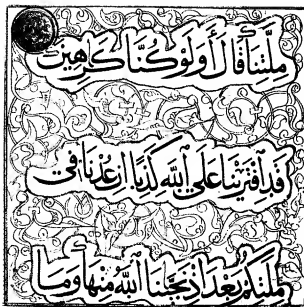 مِلَّتِنَا قَالَ أَوَلَوْ كُنَّا كَارِهِينَ
قَدِ افْتَرَيْنَا عَلَى اللَّهِ كَذِبًا إِنْ عُدْنَا فِي
مِلَّتِكُمْ بَعْدَ إِذْ نَجَّيْنَا اللَّهُ مِنْهَا وَمَا